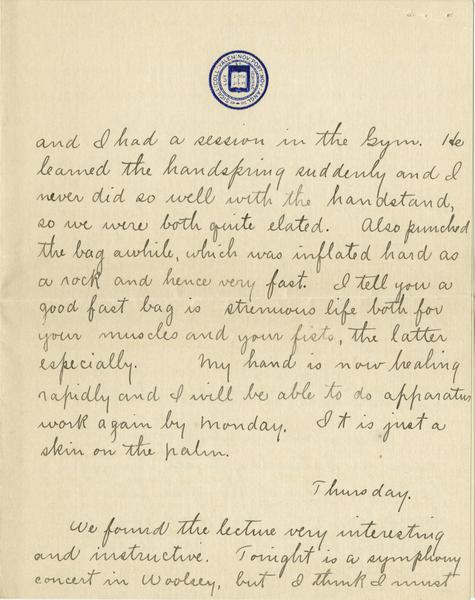 SIGILL·COLL·YALEN·NOV·PORT·NOV·ANGL
and I had a session in the Gym. He
learned the handspring suddenly and I
never did so well with the handstand,
so we were both quite elated. Also punched
the bag awhile, which was inflated hard as
a rock and hence very fast. I tell you a
good fast bag is strenuous life both for
your muscles and your fists, the latter
especially. My hand is now healing
rapidly and I will be able to do apparatus
work again by Monday. It is just a
skin on the palm.
Thursday.
We found the lecture very interesting
and instructive. Tonight is a symphony
concert in Woolsey, but I think I must